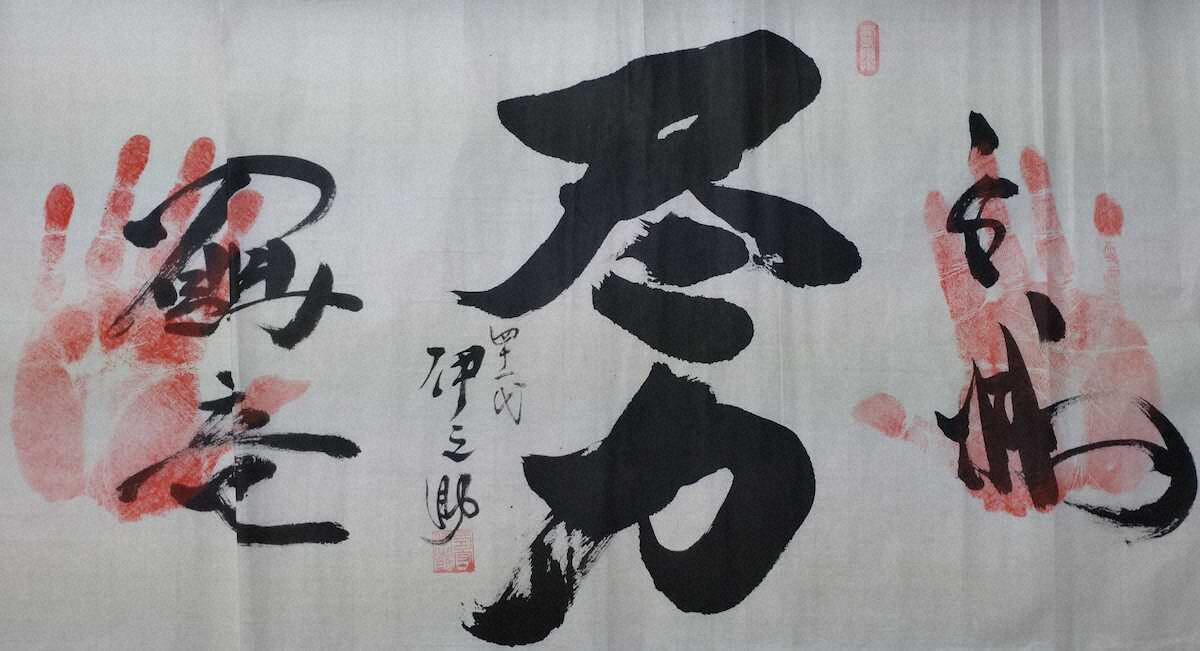 白鵬
尽力
四十一代
伊之助
鶴竜